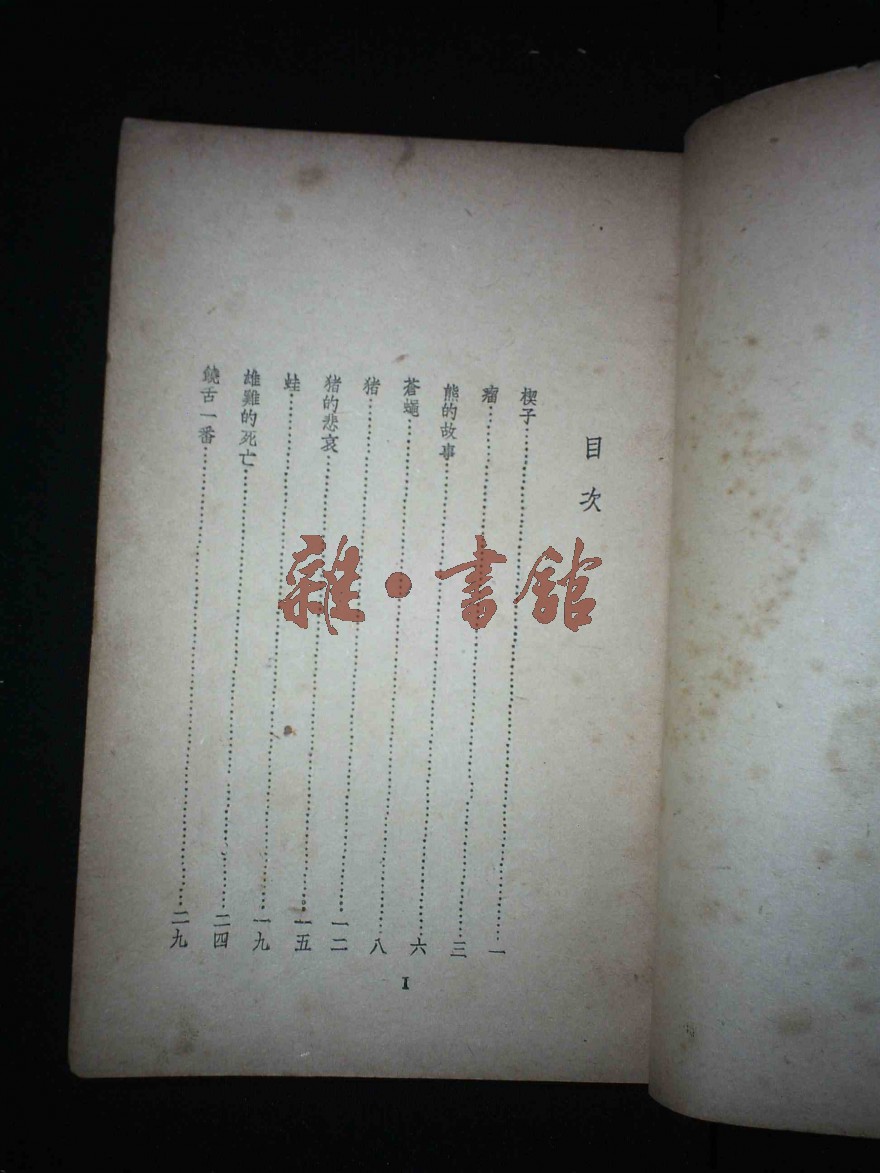 目次
楔子……一
瘤……三
熊的故事……六
蒼蠅……八
猪……一二
猪的悲哀……一五
蛙……一九
雄雞的死亡……二四
饒舌一番……二九
I
雜·書館